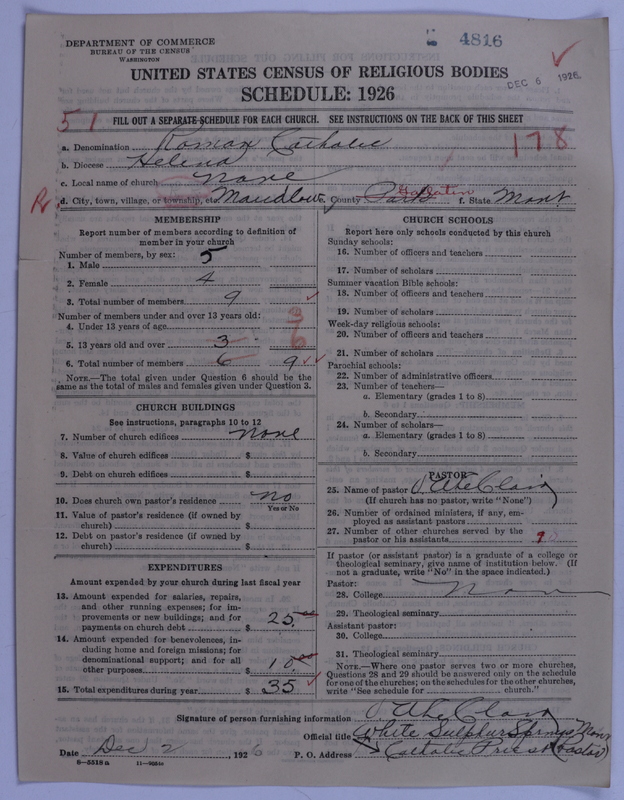 4816
DEPARTMENT OF COMMERCE
BUREAU OF THE CENSUS
WASHINGTON
DEC 6 1926
UNITED STATES CENSUS OF RELIGIOUS BODIES
SCHEDULE: 1926
51
FILL OUT A SEPARATE SCHEDULE FOR EACH CHURCH. SEE INSTRUCTIONS ON THE BACK OF THIS SHEET
178
a. Denomination Roman Catholic
b. Diocese Helena
c. Local name of church none
R
d. City, town, village, or township, etc. Maudlow e. County Park Gallatin f. State Mont.
MEMBERSHIP
Report number of members according to definition of
member in your church
Number of members, by sex:
1. Male 5
2. Female 4
3. Total number of members 9
Number of members under and over 13 years old:
4. Under 13 years of age 3
5. 13 years old and over 3 6
6. Total number of members 6 9
NOTE.—The total given under Question 6 should be the
same as the total of males and females given under Question 3.
CHURCH BUILDINGS
See instructions, paragraphs 10 to 12
7. Number of church edifices none
8. Value of church edifices $
9. Debt on church edifices $
10. Does church own pastor's residence no
Yes or No
11. Value of pastor's residence (if owned by
church) $
12. Debt on pastor's residence (if owned by
church) $
EXPENDITURES
Amount expended by your church during last fiscal year
13. Amount expended for salaries, repairs,
and other running expenses; for im-
provements or new buildings; and for
payments on church debt $ 25
14. Amount expended for benevolences, in-
cluding home and foreign missions; for
denominational support; and for all
other purposes $ 10
15. Total expenditures during year $ 35
CHURCH SCHOOLS
Report here only schools conducted by this church
Sunday schools:
16. Number of officers and teachers
17. Number of scholars
Summer vacation Bible schools:
18. Number of officers and teachers
19. Number of scholars
Week-day religious schools:
20. Number of officers and teachers
21. Number of scholars
Parochial schools:
22. Number of administrative officers
23. Number of teachers—
a. Elementary (grades 1 to 8)
b. Secondary
24. Number of scholars—
a. Elementary (grades 1 to 8)
b. Secondary
PASTOR
25. Name of pastor
(If church has no pastor, write "None")
26. Number of ordained ministers, if any, em-
ployed as assistant pastors
27. Number of other churches served by the
pastor or his assistants 9
If pastor (or assistant pastor) is a graduate of a college or
theological seminary, give name of institution below. (If
not a graduate, write "No" in the space indicated.)
Pastor:
28. College
29. Theological seminary
Assistant pastor:
30. College
31. Theological seminary
NOTE.—Where one pastor serves two or more churches,
Questions 28 and 29 should be answered only on the schedule
for one of the churches; on the schedules for the other churches,
write "See schedule for church."
Signature of person furnishing information
Official title White Sulphur Springs Mont
Date Dec 2, 1926 P. O. Address Catholic Priest (Pastor)
8—5518a 11—